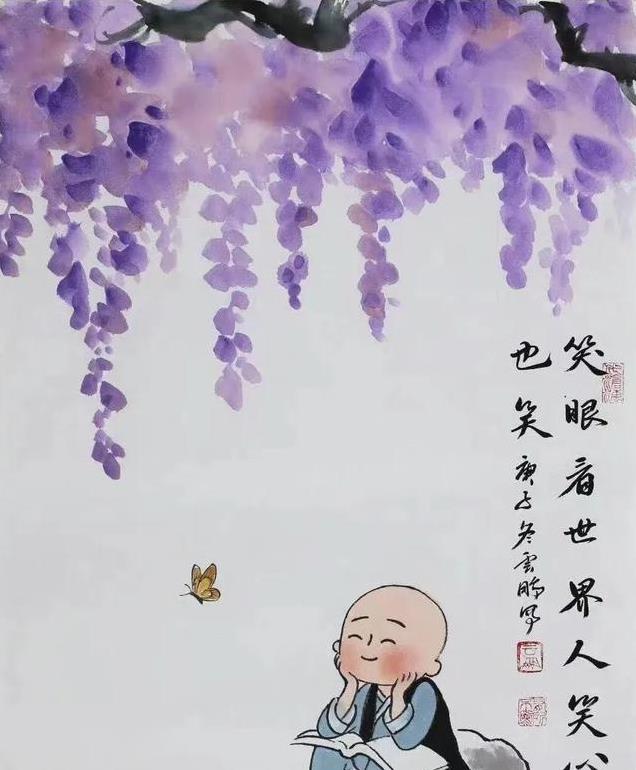 笑眼看世界人笑
也笑
庚子冬雲